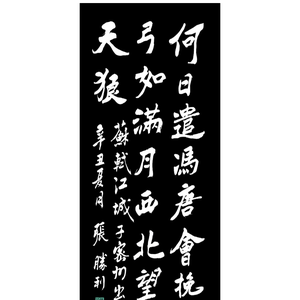 何日遣馮唐會挽
弓如滿月西北望
天狼
蘇軾江城子密州出
辛丑夏月張勝利